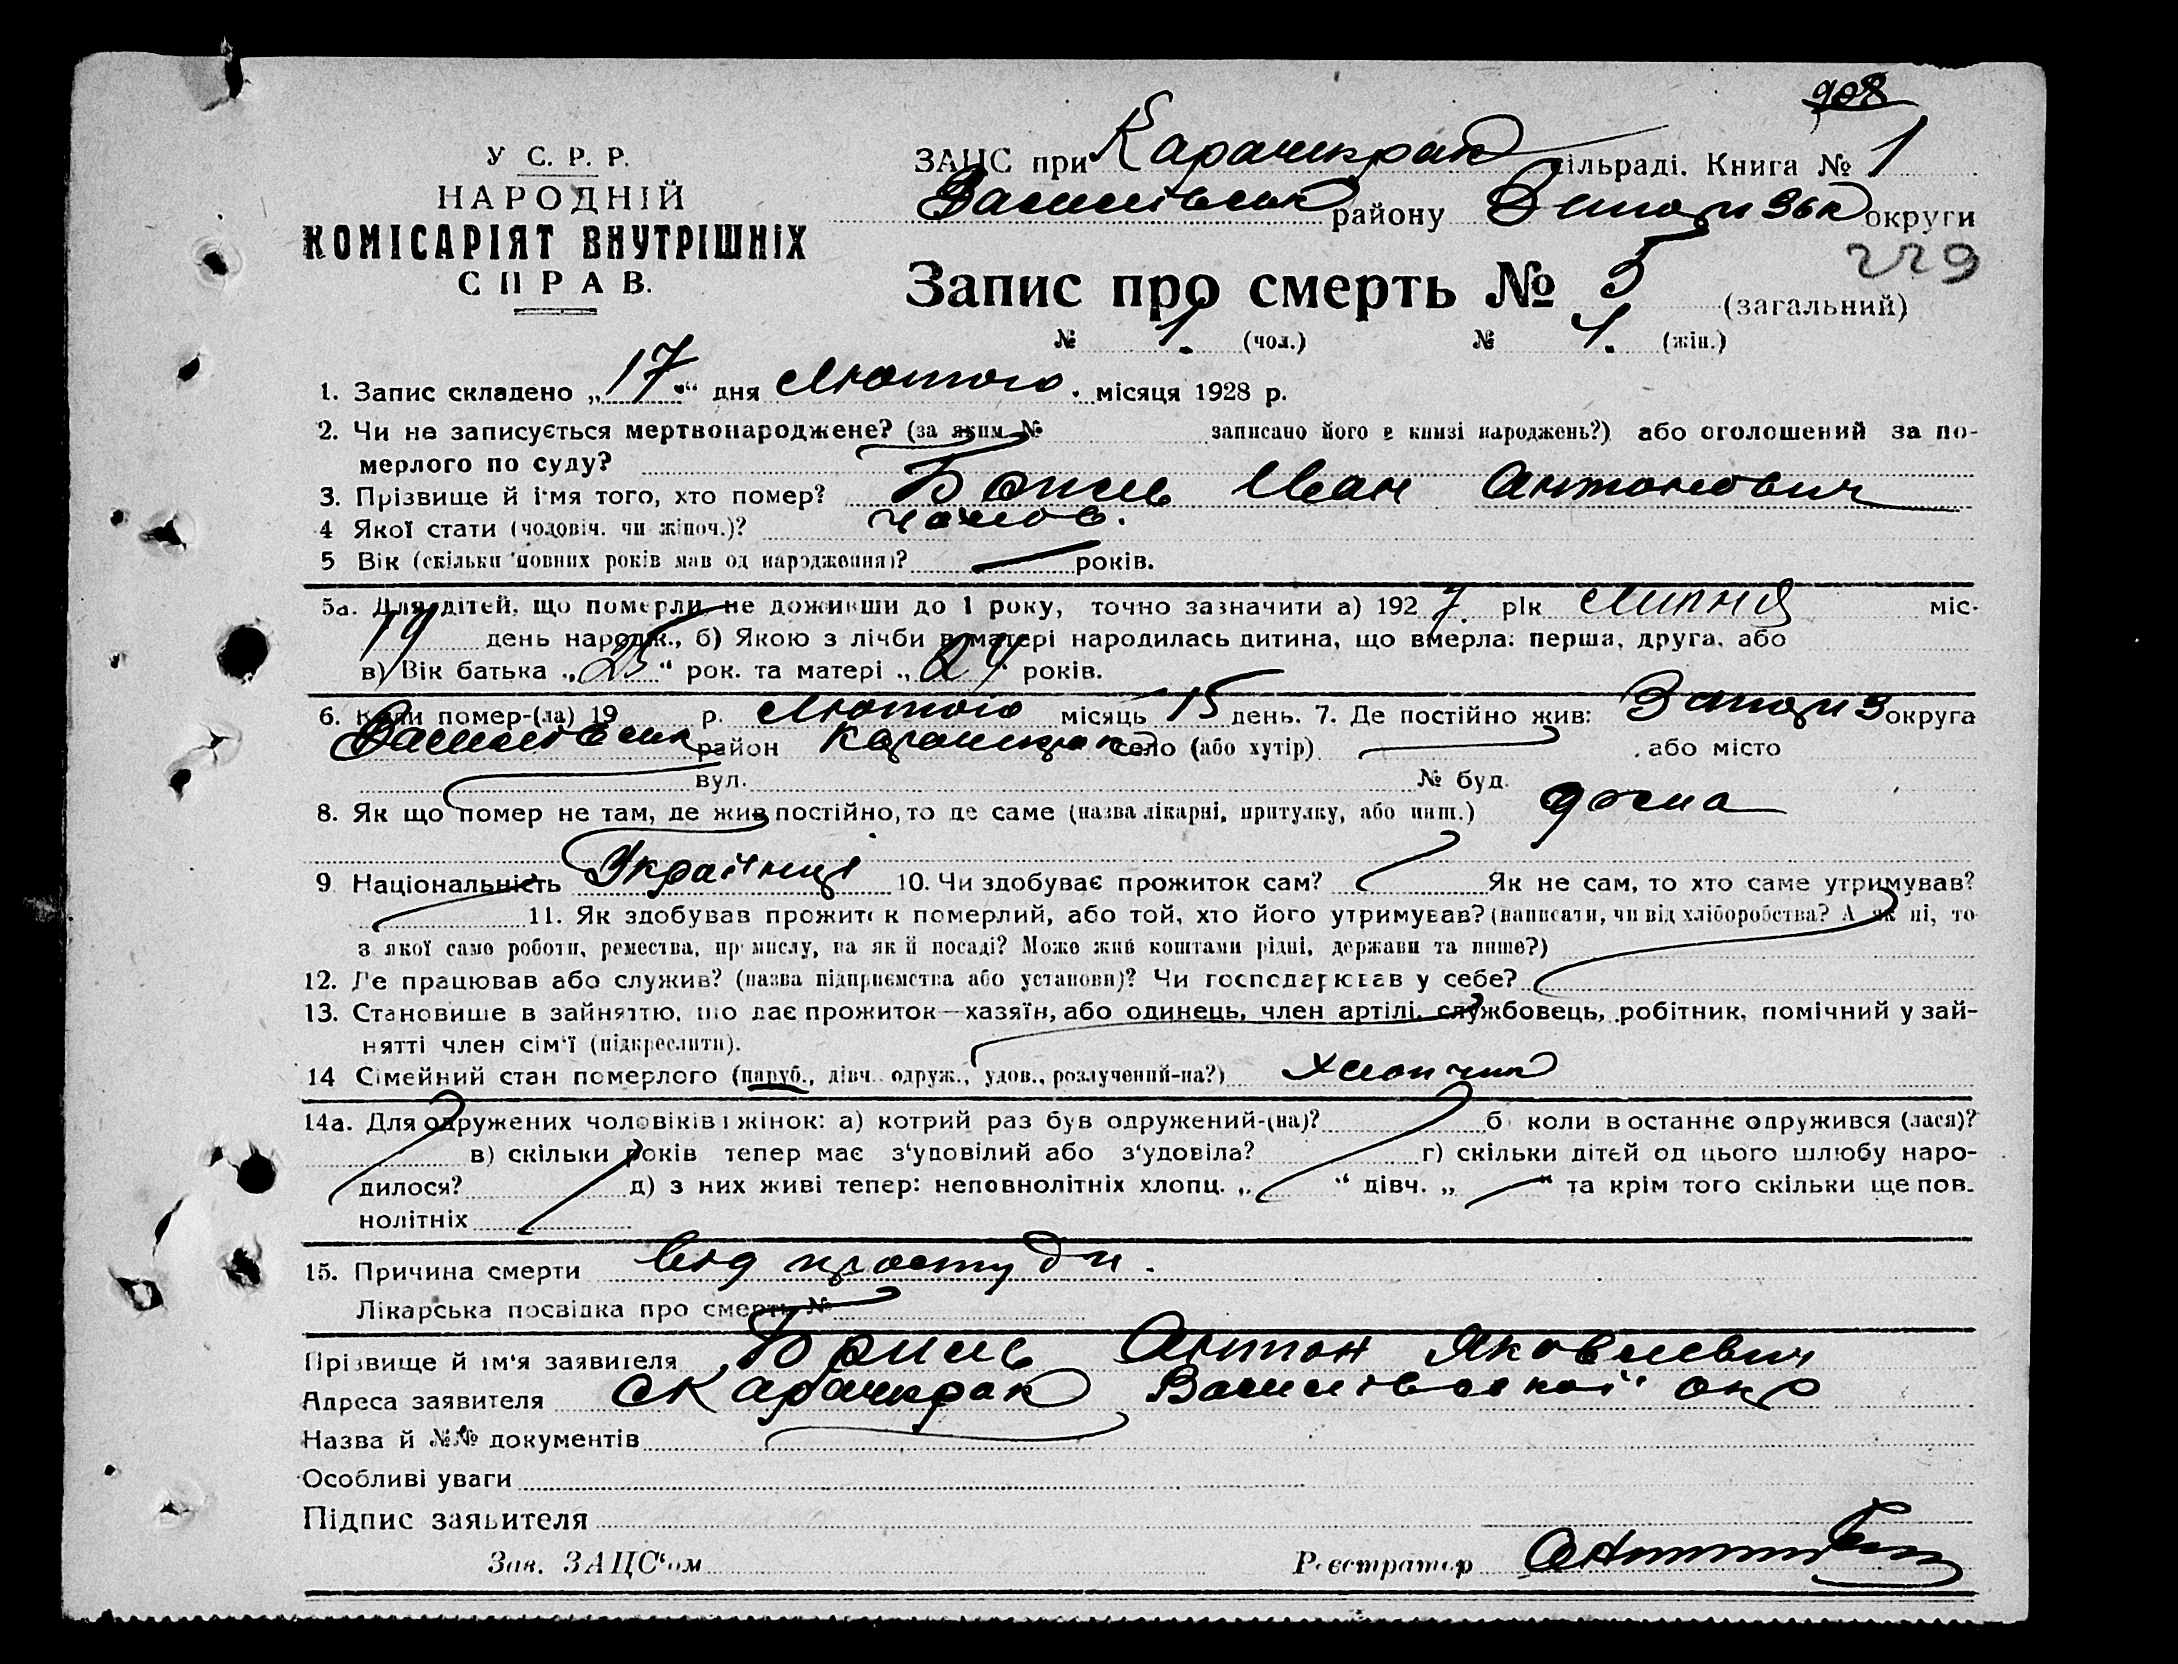 908
У С. Р. Р.
НАРОДНІЙ
КОМІСАРІЯТ ВНУТРІШНІХ
СПРАВ.
ЗАЦС при Карачикрак сільраді. Книга № 1
Василівськ району Запорізьк округи
229
Запис про смерть № 5 (загальний)
№ 1. (чол.) № 4. (жін.)
1. Запис складено „17“ дня Лютого місяця 1928 р.
2. Чи не записується мертвонароджене? (за яким № записано його в книзі народжень?) або оголошений за по-
мерлого по суду?
3. Прізвище й ім'я того, хто помер? Іван Антонович
4 Якої стати (чоловіч. чи жіноч.)? чолов.
5 Вік (скільки повних років мав од народження)? — років.
5а. Для дітей, що померли, не доживши до 1 року, точно зазначити а) 1927. рік Липня міс.
19 день народж., б) Якою з лічби в матері народилась дитина, що вмерла: перша, друга, або
в) Вік батька „25“ рок. та матері „24“ років.
6. Коли помер-(ла) 19 р. Лютого місяць 15 день. 7. Де постійно жив: Запоріз округа
Василівськ район Карачикрак село (або хутір) , або місто
вул. № буд.
8. Як що помер не там, де жив постійно, то де саме (назва лікарні, притулку, або инш.) дома
9 Національність Українці 10. Чи здобуває прожиток сам? Як не сам, то хто саме утримував?
11. Як здобував прожиток померлий, або той, хто його утримував? (написати, чи від хліборобства? А як ні, то
з якої саме роботи, ремества, промислу, на якій посаді? Може жив коштами рідні, держави та инше?)
12. Де працював або служив? (назва підприємства або установи)? Чи господарював у себе?
13. Становише в зайняттю, що дає прожиток—хазяїн, або одинець, член артілі, службовець, робітник, помічний у зай-
нятті член сім'ї (підкреслити).
14 Сімейний стан померлого (паруб., дівч. одруж., удов., розлучений-на?) хлопчик
14а. Для одружених чоловіків і жінок: а) котрий раз був одружений-(на)? б коли востаннє одружився (лася)?
в) скільки років тепер має з'удовілий або з'удовіла? г) скільки дітей од цього шлюбу наро-
дилося? д) з них живі тепер: неповнолітніх хлопц. „ “ дівч. „ “ та крім того скільки ще пов.
нолітніх
15. Причина смерти від простуди.
Лікарська посвідка про смерть №
Прізвище й ім'я заявителя Антон Яковлевич
Адреса заявителя с Карачикрак Василівської окр
Назва й №№ документів
Особливі уваги
Підпис заявителя
Зав. ЗАЦС'ом Реєстратор